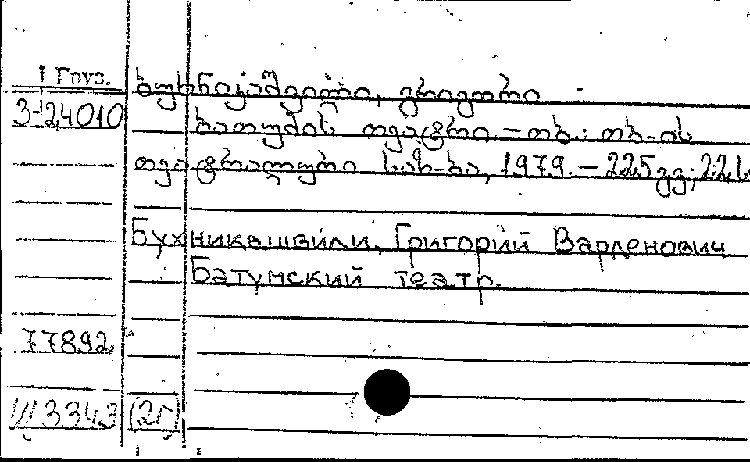 Груз.
3-24010
ბუხნიკაშვილი, გრიგორი
ბათუმის თეატრი. – თბ.: თბ-ის
თეატრალური საზ-ბა, 1979. – 225 გვ.; 22 l
Бухникашвили, Григорий Варленович
Батумский театр.
77892
Ш 3343 (2Г)